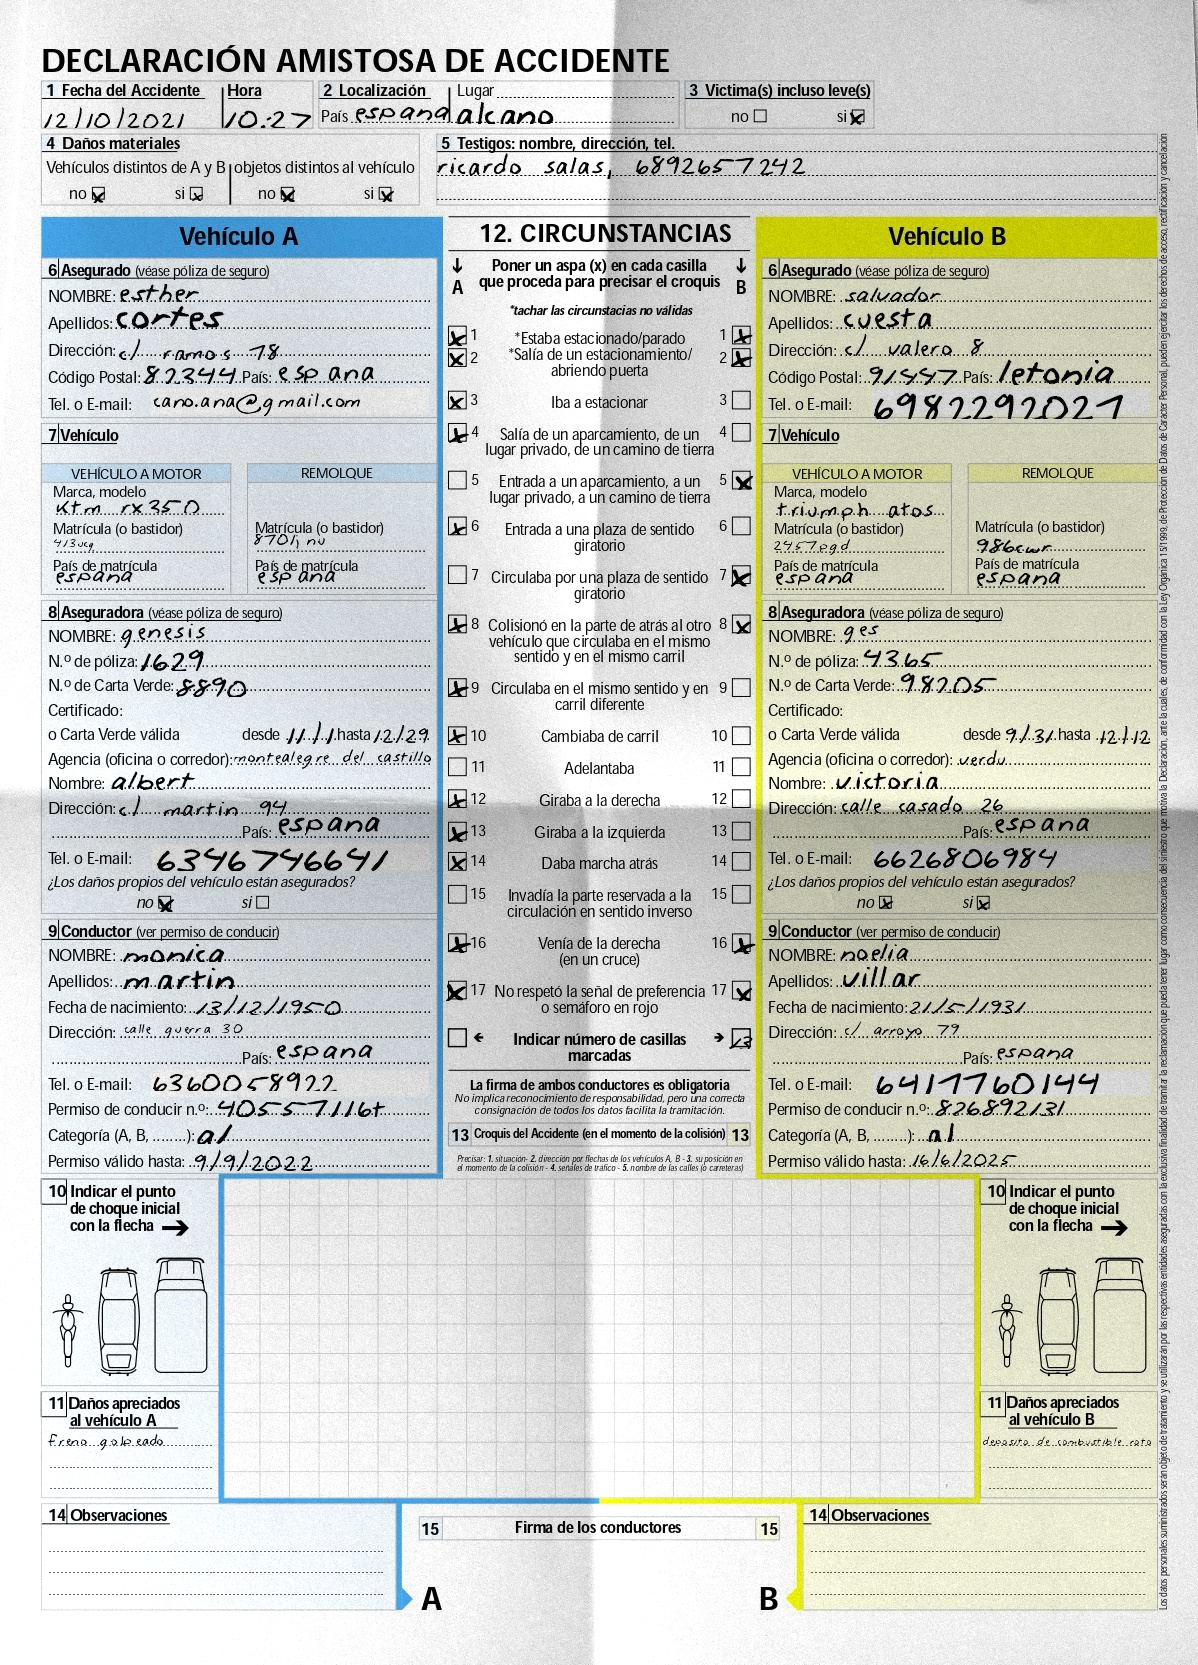 DECLARACIÓN AMISTOSA DE ACCIDENTE
1 Fecha del Accidente Hora 2 Localización Lugar 3 Victima(s) incluso leve(s)
12/10/2021 10:27 País espana alcano no si
4 Daños materiales
Vehículos distintos de A y B objetos distintos al vehículo
no si no si
5 Testigos: nombre, dirección, tel.
ricardo salas, 6892657242
Vehículo A
6 Asegurado (véase póliza de seguro)
NOMBRE: esther
Apellidos: cortes
Dirección: c/ ramos 78
Código Postal: 82344 País: espana
Tel. o E-mail: cano.ana@gmail.com
7 Vehículo
VEHÍCULO A MOTOR REMOLQUE
Marca, modelo
ktm rx350
Matrícula (o bastidor) Matrícula (o bastidor)
413ucg 8701jnv
País de matrícula País de matrícula
espana espana
8 Aseguradora (véase póliza de seguro)
NOMBRE: genesis
N.º de póliza: 1629
N.º de Carta Verde: 8890
Certificado:
o Carta Verde válida desde 11/1 hasta 12/29
Agencia (oficina o corredor): montealegre del castillo
Nombre: albert
Dirección: c/ martin 94
País: espana
Tel. o E-mail: 6346746641
¿Los daños propios del vehículo están asegurados?
no si
9 Conductor (ver permiso de conducir)
NOMBRE: monica
Apellidos: martin
Fecha de nacimiento: 13/12/1950
Dirección: calle guerra 30
País: espana
Tel. o E-mail: 6360058922
Permiso de conducir n.º: 40557116t
Categoría (A, B, ........): a1
Permiso válido hasta: 9/9/2022
12. CIRCUNSTANCIAS
A Poner un aspa (x) en cada casilla B
que proceda para precisar el croquis
*tachar las circunstacias no válidas
1 *Estaba estacionado/parado 1
2 *Salía de un estacionamiento/ 2
abriendo puerta
3 Iba a estacionar 3
4 Salía de un aparcamiento, de un 4
lugar privado, de un camino de tierra
5 Entrada a un aparcamiento, a un 5
lugar privado, a un camino de tierra
6 Entrada a una plaza de sentido 6
giratorio
7 Circulaba por una plaza de sentido 7
giratorio
8 Colisionó en la parte de atrás al otro 8
vehículo que circulaba en el mismo
sentido y en el mismo carril
9 Circulaba en el mismo sentido y en 9
carril diferente
10 Cambiaba de carril 10
11 Adelantaba 11
12 Giraba a la derecha 12
13 Giraba a la izquierda 13
14 Daba marcha atrás 14
15 Invadía la parte reservada a la 15
circulación en sentido inverso
16 Venía de la derecha 16
(en un cruce)
17 No respetó la señal de preferencia 17
o semáforo en rojo
Indicar número de casillas 13
marcadas
La firma de ambos conductores es obligatoria
No implica reconocimiento de responsabilidad, pero una correcta
consignación de todos los datos facilita la tramitación.
13 Croquis del Accidente (en el momento de la colisión) 13
Precisar: 1. situación- 2. dirección por flechas de los vehículos A, B - 3. su posición en
el momento de la colisión - 4. señales de tráfico - 5. nombre de las calles (o carreteras)
Vehículo B
6 Asegurado (véase póliza de seguro)
NOMBRE: salvador
Apellidos: cuesta
Dirección: c/ valero 8
Código Postal: 91557 País: letonia
Tel. o E-mail: 6982292021
7 Vehículo
VEHÍCULO A MOTOR REMOLQUE
Marca, modelo
triumph atos
Matrícula (o bastidor) Matrícula (o bastidor)
2457pgd 986cwr
País de matrícula País de matrícula
espana espana
8 Aseguradora (véase póliza de seguro)
NOMBRE: ges
N.º de póliza: 4365
N.º de Carta Verde: 98205
Certificado:
o Carta Verde válida desde 9/31 hasta 12/12
Agencia (oficina o corredor): verdu
Nombre: victoria
Dirección: calle casado 26
País: espana
Tel. o E-mail: 6626806984
¿Los daños propios del vehículo están asegurados?
no si
9 Conductor (ver permiso de conducir)
NOMBRE: noelia
Apellidos: villar
Fecha de nacimiento: 21/5/1931
Dirección: c/ arroyo 79
País: espana
Tel. o E-mail: 6417760144
Permiso de conducir n.º: 826892131
Categoría (A, B, ........): a1
Permiso válido hasta: 16/6/2025
10 Indicar el punto
de choque inicial
con la flecha
11 Daños apreciados
al vehículo A
freno golpeado
10 Indicar el punto
de choque inicial
con la flecha
11 Daños apreciados
al vehículo B
deposito de combustible roto
14 Observaciones
15 Firma de los conductores 15
A B
14 Observaciones